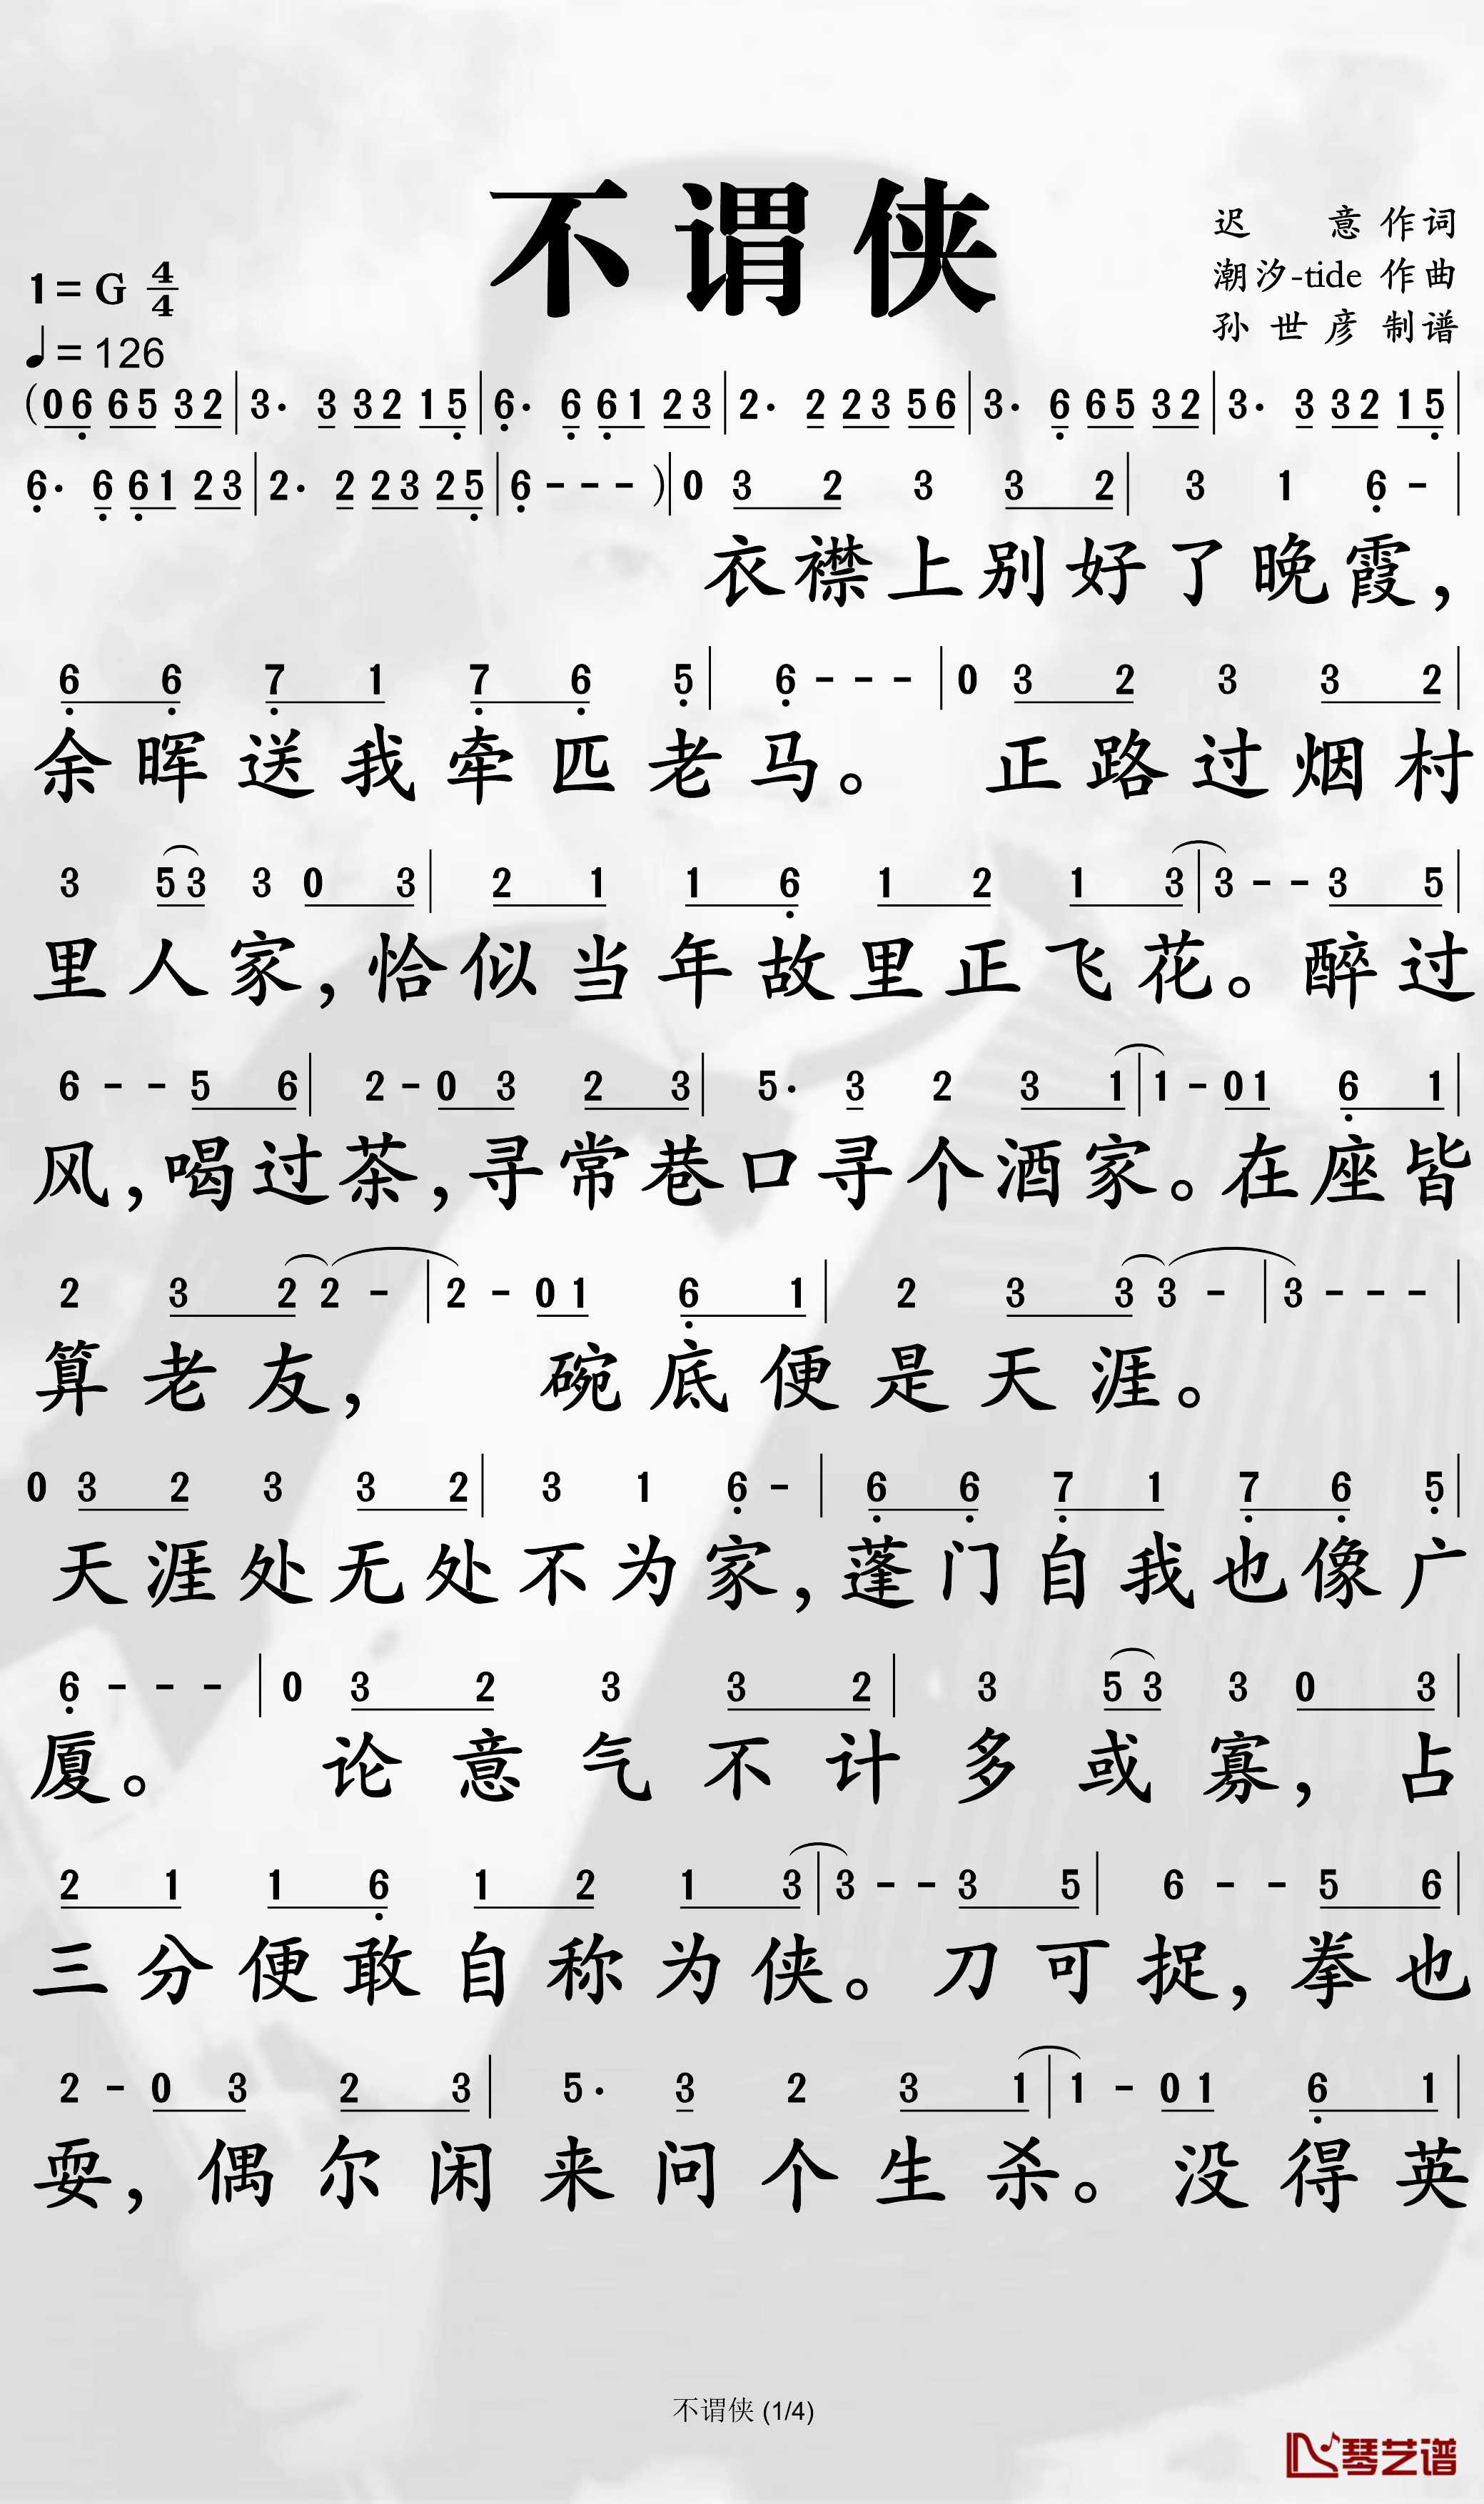 不谓侠
迟 意 作词
潮汐-tide 作曲
孙世彦 制谱
1= G 4/4
♩= 126
(0 6̣ 6 5 3 2 | 3· 3 3 2 1 5̣ | 6̣· 6̣ 6̣ 1 2 3 | 2· 2 2 3 5 6 | 3· 6̣ 6 5 3 2 | 3· 3 3 2 1 5̣ |
6̣· 6̣ 6̣ 1 2 3 | 2· 2 2 3 2 5̣ | 6̣ - - - )| 0 3 2 3 3 2 | 3 1 6̣ - |
衣襟上别好了晚霞，
6̣ 6̣ 7̣ 1 7̣ 6̣ 5̣ | 6̣ - - - | 0 3 2 3 3 2 |
余晖送我牵匹老马。 正路过烟村
3 5 3 3 0 3 | 2 1 1 6̣ 1 2 1 3 | 3 - - 3 5 |
里人家，恰似当年故里正飞花。醉过
6 - - 5 6 | 2 - 0 3 2 3 | 5· 3 2 3 1 | 1 - 0 1 6̣ 1 |
风，喝过茶，寻常巷口寻个酒家。在座皆
2 3 2 2 - | 2 - 0 1 6̣ 1 | 2 3 3 3 - | 3 - - - |
算老友， 碗底便是天涯。
0 3 2 3 3 2 | 3 1 6̣ - | 6̣ 6̣ 7̣ 1 7̣ 6̣ 5̣ |
天涯处无处不为家，蓬门自我也像广
6̣ - - - | 0 3 2 3 3 2 | 3 5 3 3 0 3 |
厦。 论意气不计多或寡，占
2 1 1 6̣ 1 2 1 3 | 3 - - 3 5 | 6 - - 5 6 |
三分便敢自称为侠。刀可捉，拳也
2 - 0 3 2 3 | 5· 3 2 3 1 | 1 - 0 1 6̣ 1 |
耍，偶尔闲来问个生杀。没得英
不谓侠 (1/4)
琴艺谱